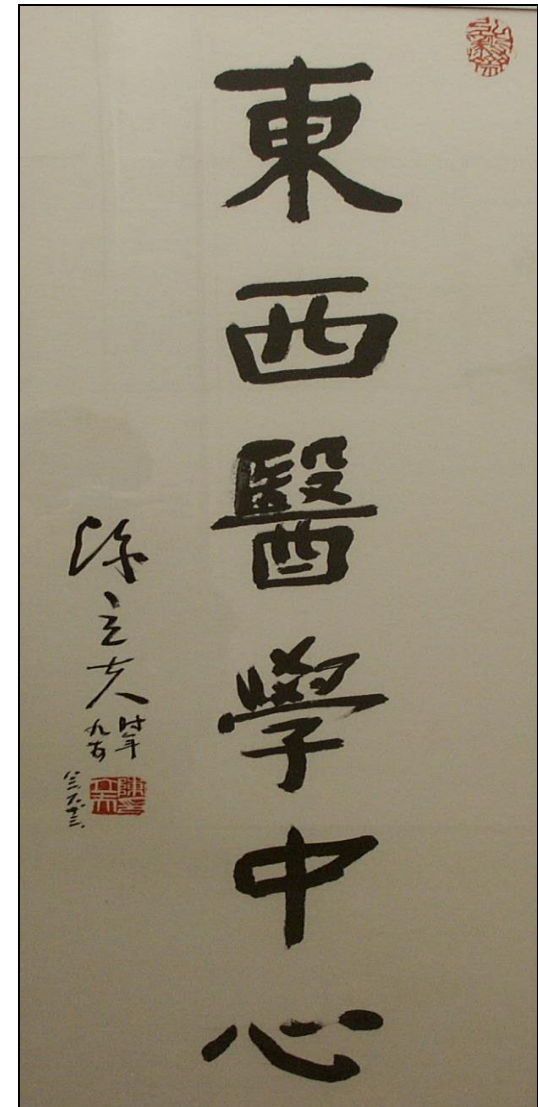 東西醫學中心
陳立夫
时年
九五